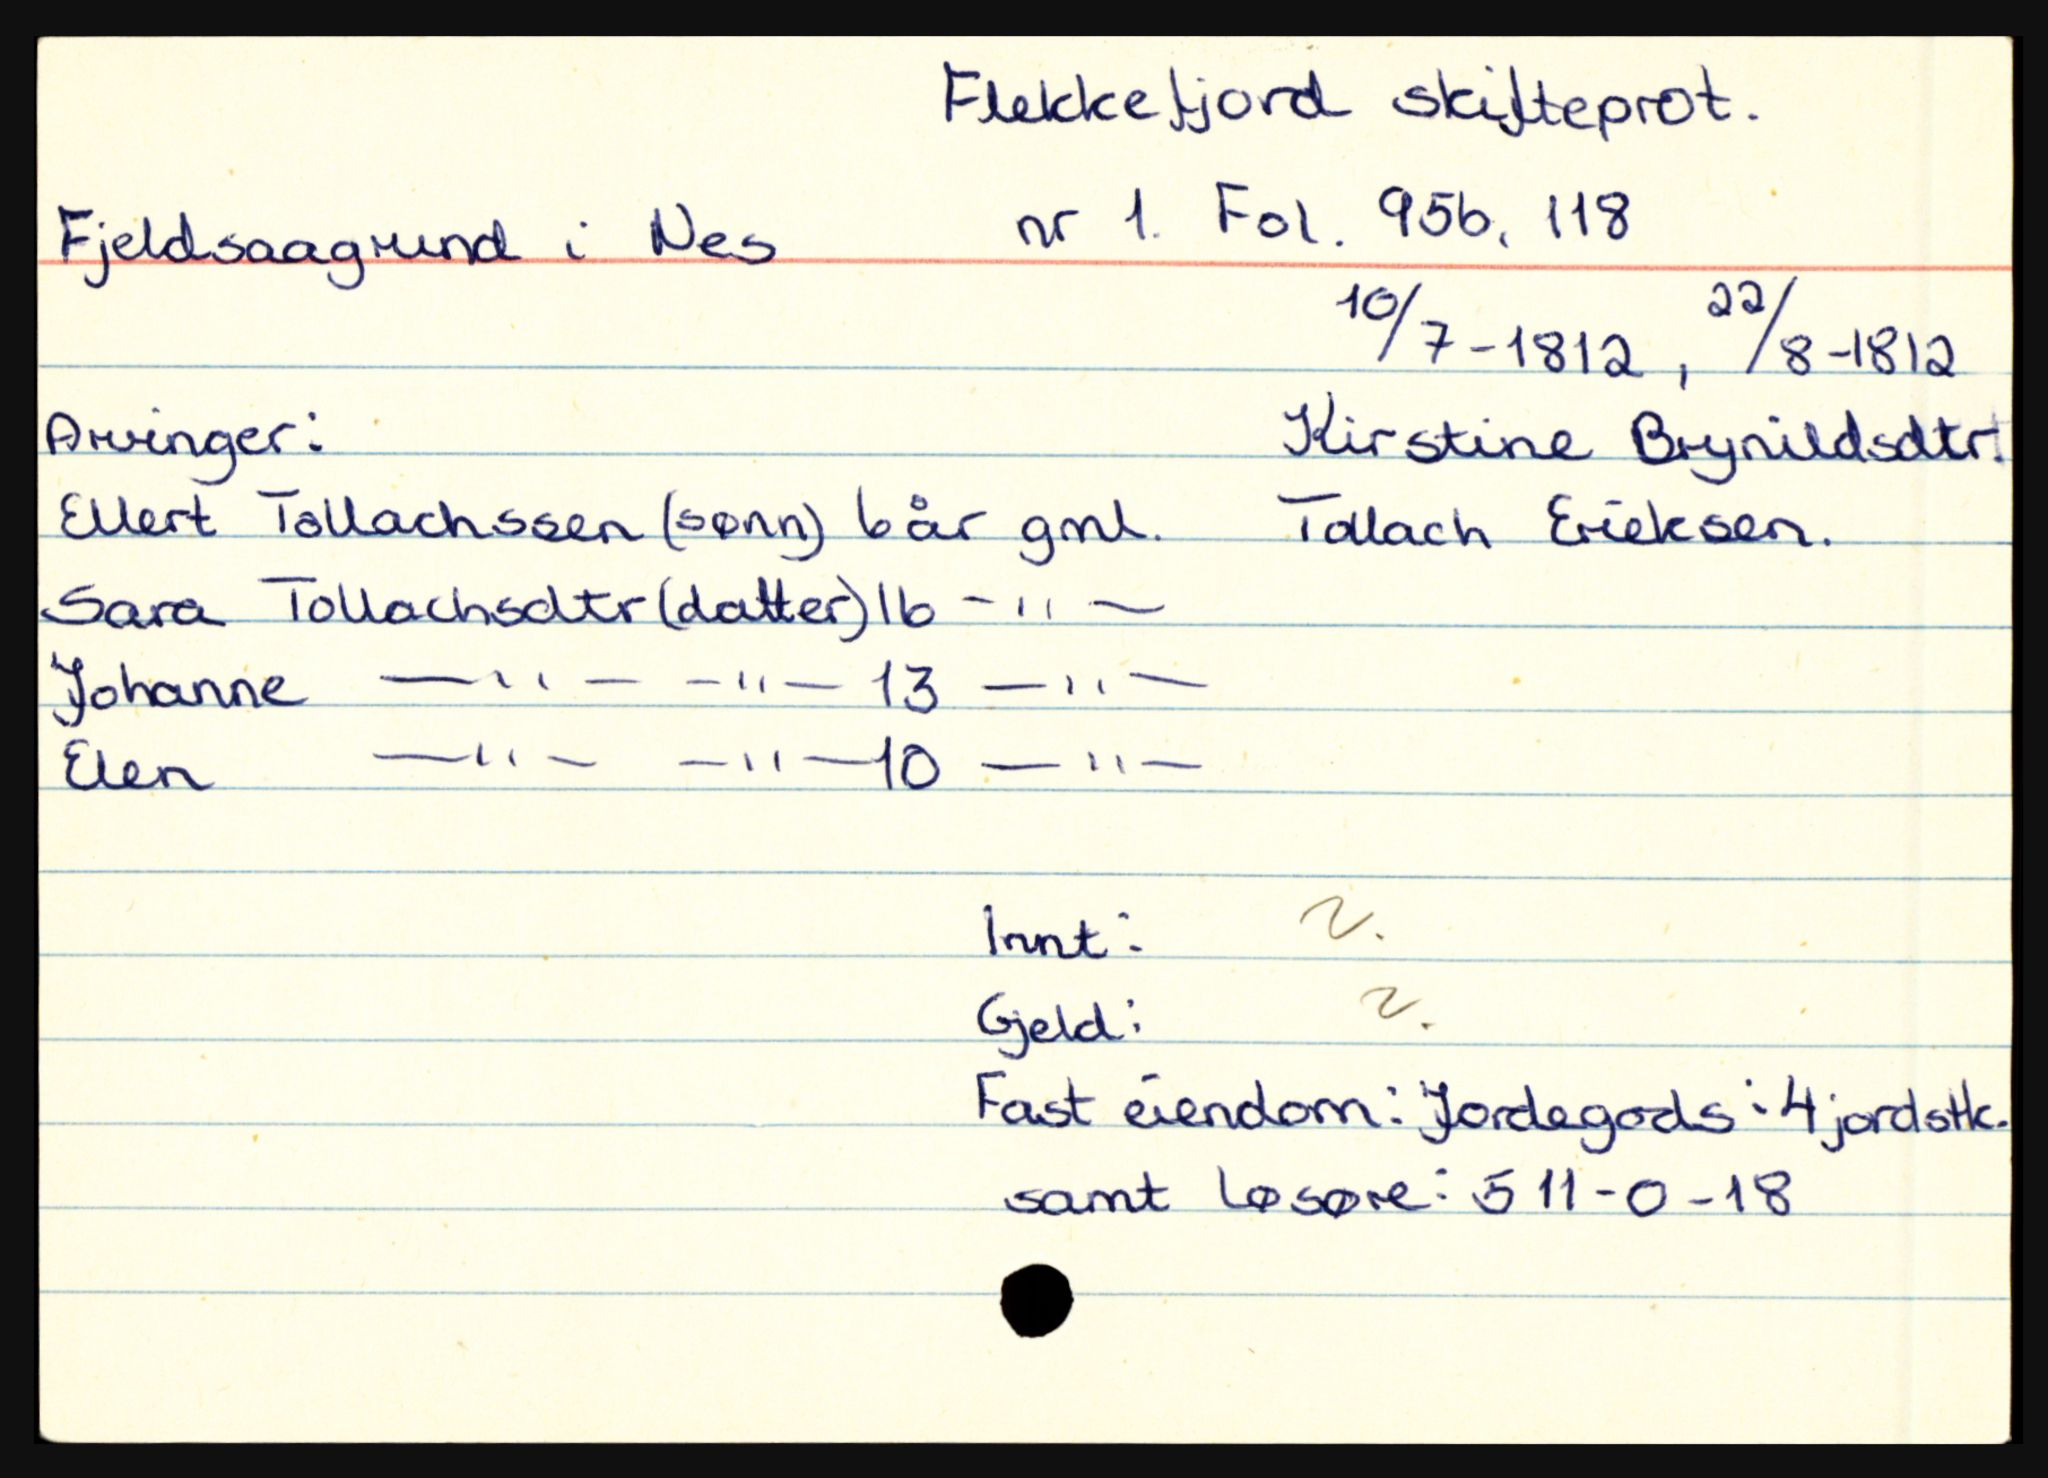 Flekkefjord skifteprot.
Fjeldsaagrund i Nes nr 1. Fol. 95b, 118
10/7-1812, 22/8-1812
Arvinger: Kirstine Brynildsdtr†
Ellert Tollachssen (sønn) 6 år gml. Tollach Erieksen.
Sara Tollachsdtr (datter) 16 -"-
Johanne -"- -"- 13 -"-
Elen -"- -"- 10 -"-
Innt:
Gjeld:
Fast eiendom: Jordegods: 4 jordstk.
samt løsøre: 511-0-18